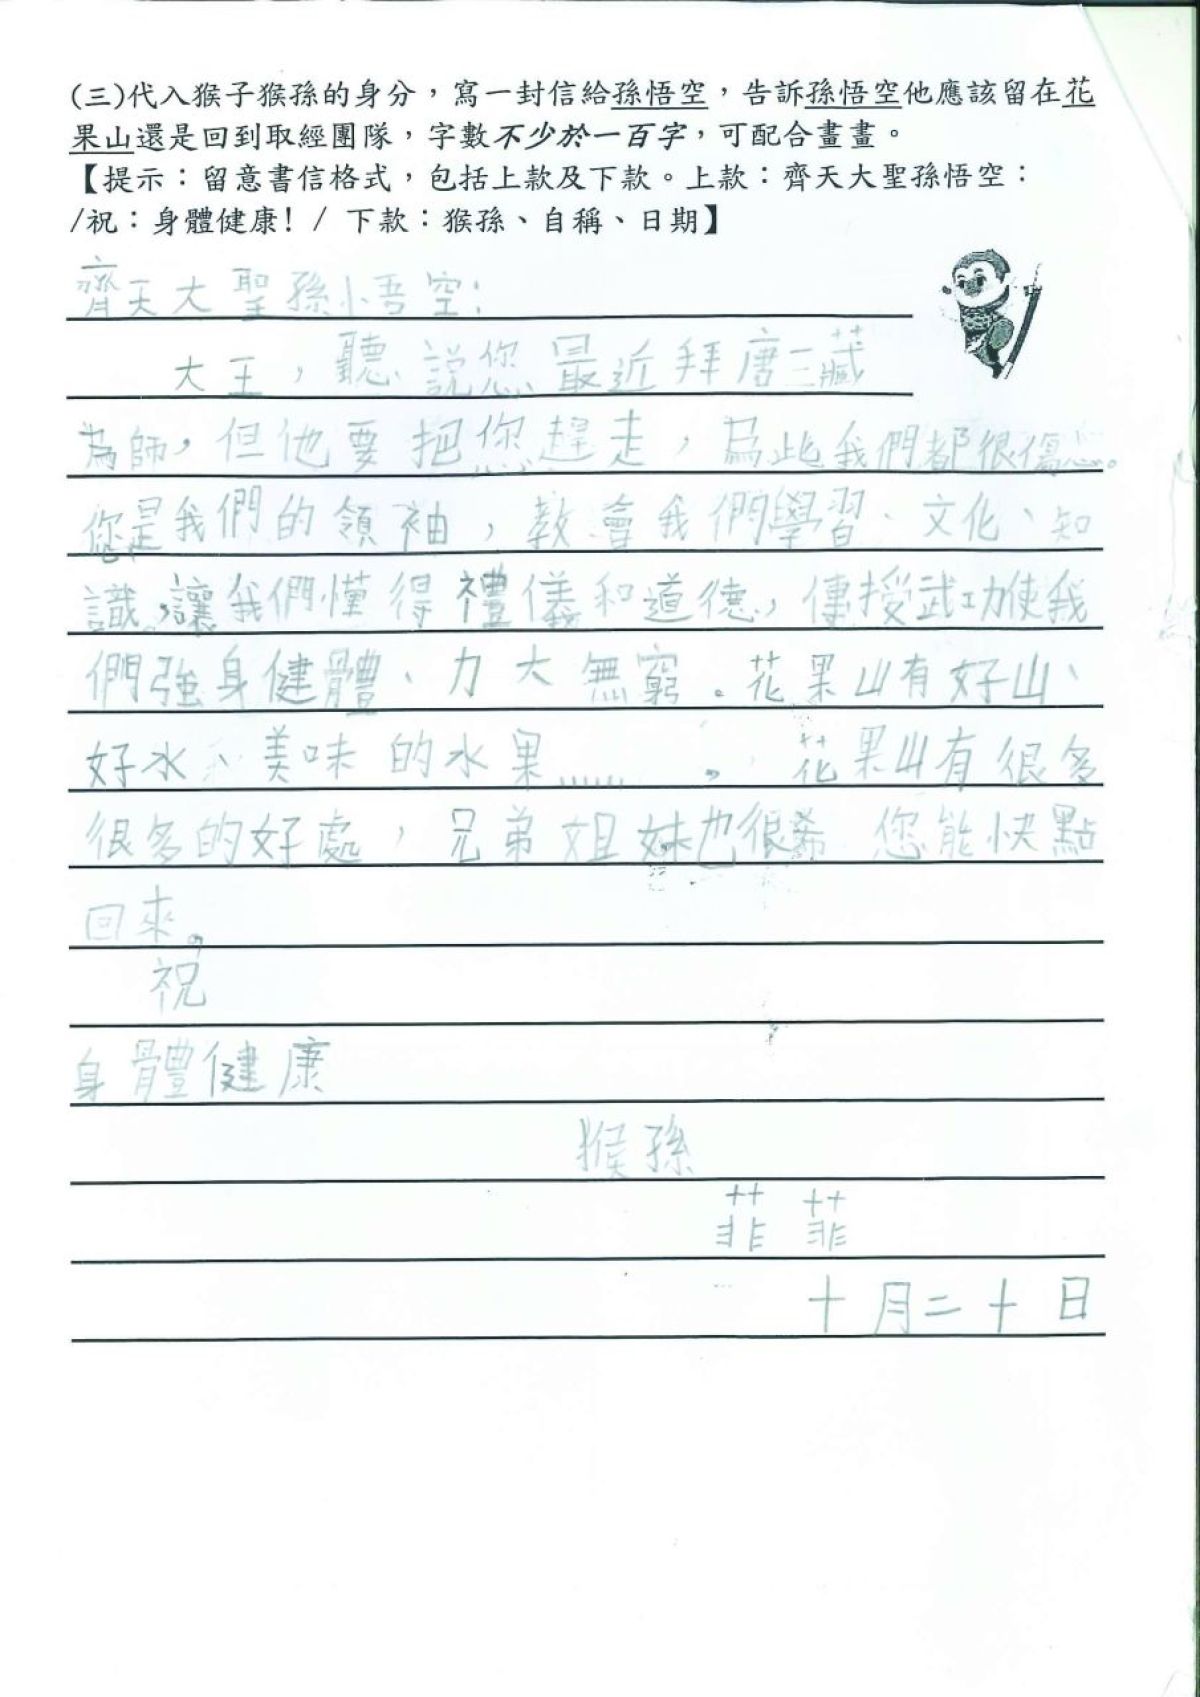 (三)代入猴子猴孫的身分，寫一封信給孫悟空，告訴孫悟空他應該留在花
果山還是回到取經團隊，字數不少於一百字，可配合畫畫。
【提示：留意書信格式，包括上款及下款。上款：齊天大聖孫悟空：
/祝：身體健康! / 下款：猴孫、自稱、日期】
齊天大聖孫悟空：
大王，聽說您最近拜唐三藏
為師，但他要把您趕走，為此我們都很傷心。
您是我們的領袖，教會我們學習、文化、知
識，讓我們懂得禮儀和道德，傳授武功使我
們強身健體、力大無窮。花果山有好山、
好水、美味的水果……。花果山有很多
很多的好處，兄弟姐妹也很希 您能快點
回來。
祝
身體健康
猴孫
菲菲
十月二十日